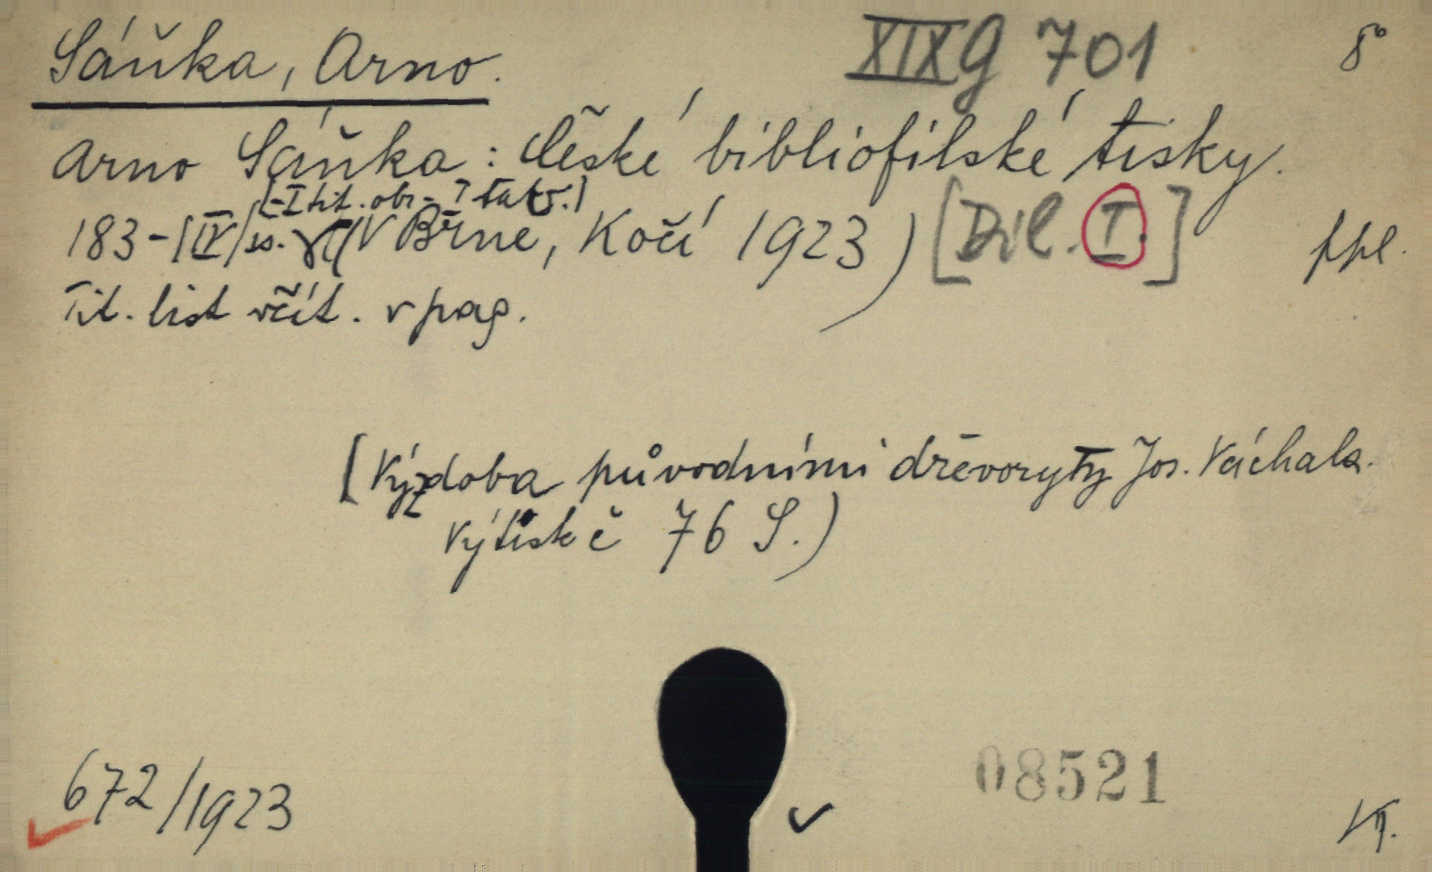 Sáňka, Arno. XIX G 701 8°
Arno Sáňka: České bibliofilské tisky.
[-I tit. obr. - 7 tab.]
183-[IV] s. (V Brně, Kočí 1923) [Díl. I.] ppl.
Tit. list včít. v pag.
[Výzdoba původními dřevoryty Jos. Váchala.
Výtisk č 76 S.)
672/1923
08521